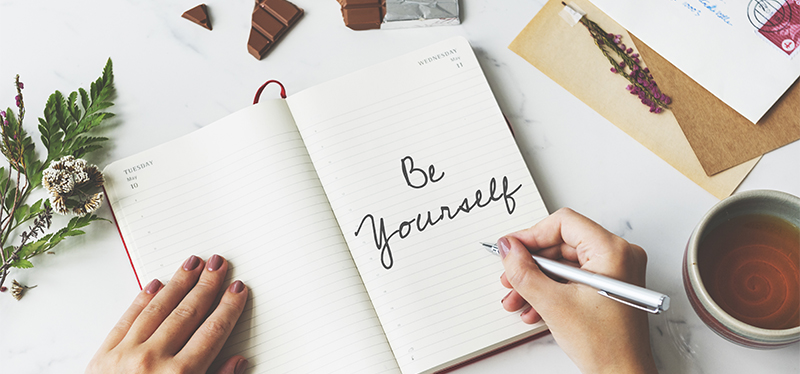 TUESDAY
May
10
WEDNESDAY
May
11
Be
Yourself